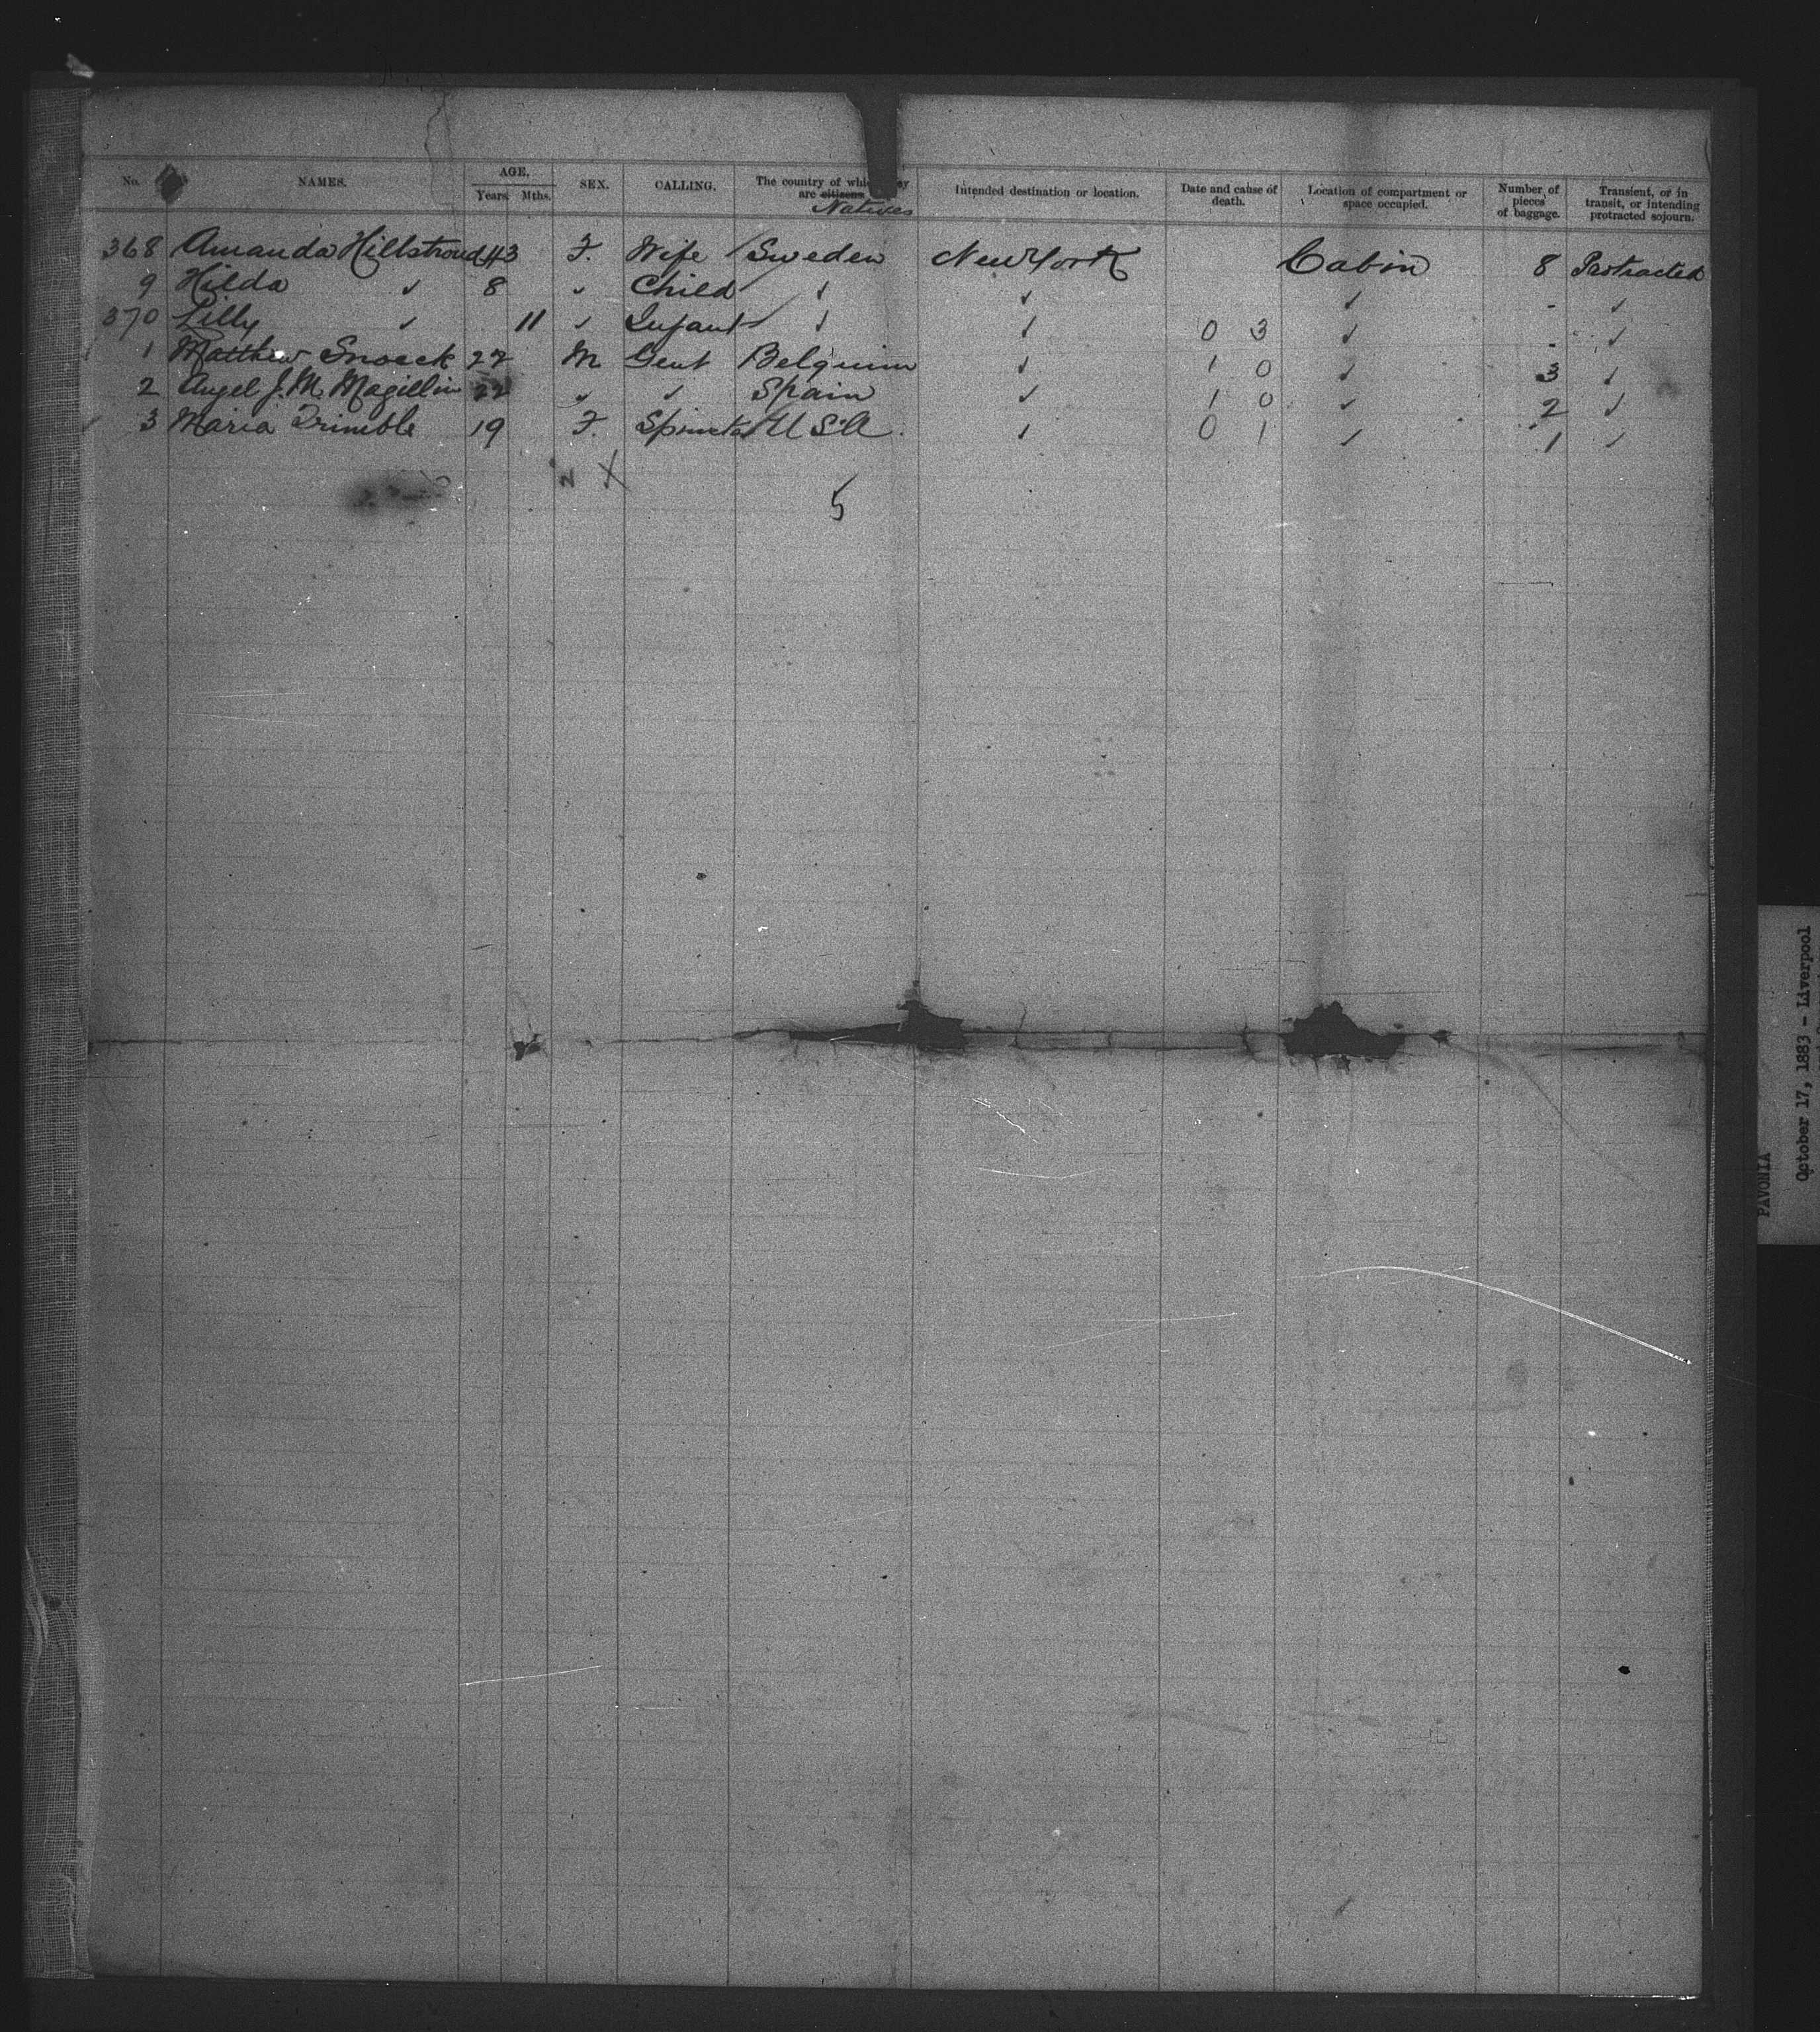 No. NAMES. AGE. Years. Mths. SEX. CALLING. The country of which they are citizens Natives Intended destination or location. Date and cause of death. Location of compartment or space occupied. Number of pieces of baggage. Transient, or in transit, or intending protracted sojourn.
368 Amanda Hillstroud 43 F. Wife Sweden New York Cabin 8 Protracted
9 Hilda ✓ 8 ✓ Child ✓ ✓ ✓ - ✓
370 Lilly ✓ 11 ✓ Infant ✓ ✓ 0 3 ✓ - ✓
1 Matthew Snoeck 27 M Gent Belguim ✓ 1 0 ✓ 3 ✓
2 Angel J. M. Magillin 22 ✓ ✓ Spain ✓ 1 0 ✓ 2 ✓
3 Maria Trimble 19 F. Spinster U S A. ✓ 0 1 ✓ 1 ✓
5
PAVONIA
October 17, 1883 - Liverpool